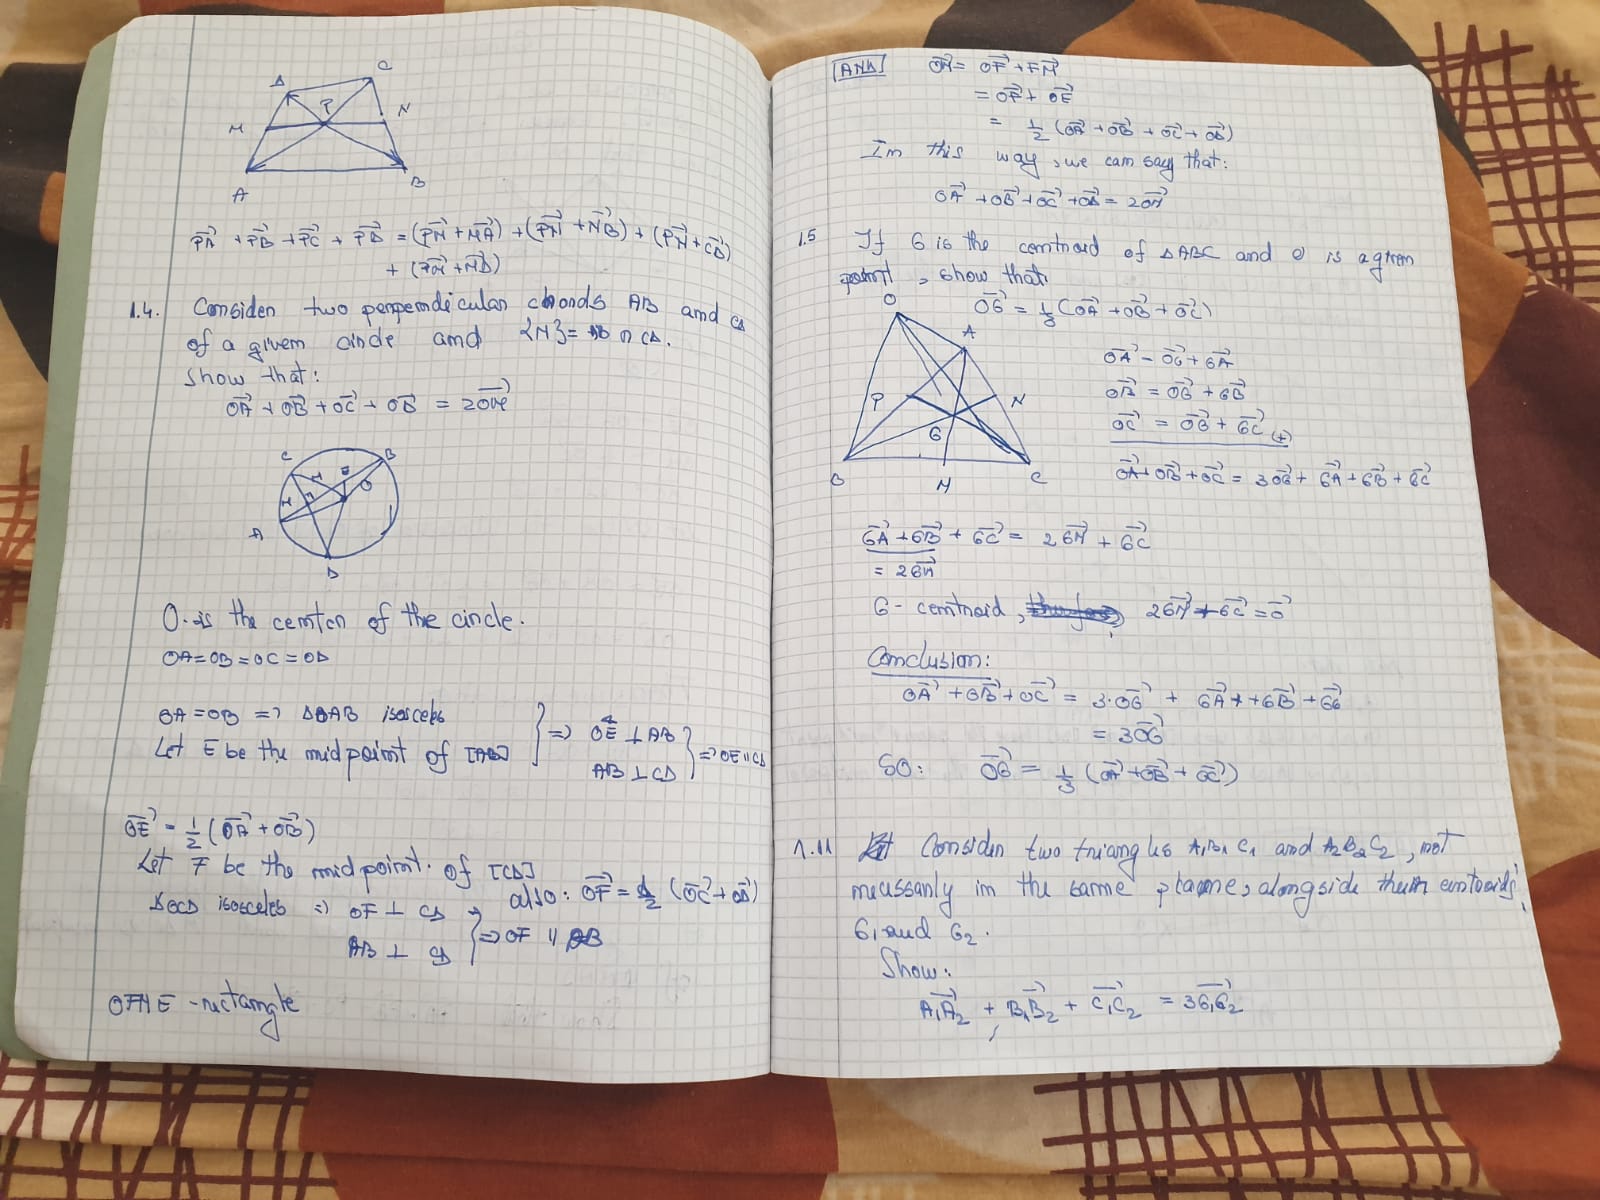 D
C
P
M
N
A
B
PA + PB + PC + PD = (PM + MA) + (PN + NB) + (PN + CD)
+ (PM + MD)
1.4. Consider two perpendicular chonds AB and CD
of a given circle and {M} = AB ∩ CD.
Show that:
OA + OB + OC + OB = 2OM
C
B
M
E
O
A
D
O-is the center of the circle.
OA=OB=OC=OD
OA=OB => ΔOAB isosceles
Let E be the midpoint of [AB]
=> OE ⊥ AB
AB ⊥ CD
=> OE ∥ CD
OE = 1/2 (OA + OB)
Let F be the midpoint of [CD]
also: OF = 1/2 (OC + OD)
ΔOCD isosceles => OF ⊥ CD
AB ⊥ CD
=> OF ∥ AB
OFME - rectangle
AND OM = OF + FM
= OF + OE
= 1/2 (OA + OB + OC + OD)
In this way, we can say that:
OA + OB + OC + OD = 2OM
1.5 If G is the centroid of ΔABC and O is a given
point, show that
OG = 1/3 (OA + OB + OC)
O
A
P
N
G
B
M
C
OA = OG + GA
OB = OG + GB
OC = OG + GC (+)
OA + OB + OC = 3OG + GA + GB + GC
GA + GB + GC = 2GM + GC
= 2GM
G - centroid, 2GM + GC = 0
Conclusion:
OA + OB + OC = 3·OG + GA + + GB + GG
= 3OG
SO: OG = 1/3 (OA + OB + OC)
1.11 Consider two triangles A₁B₁C₁ and A₂B₂C₂, not
necessarily in the same plane, alongside their centroids
G₁ and G₂.
Show:
A₁A₂ + B₁B₂ + C₁C₂ = 3G₁G₂